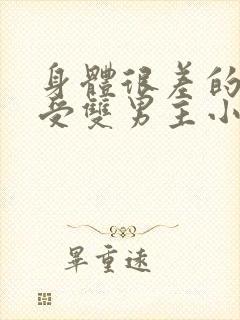 身體很差的
受雙男主小
畢重遠